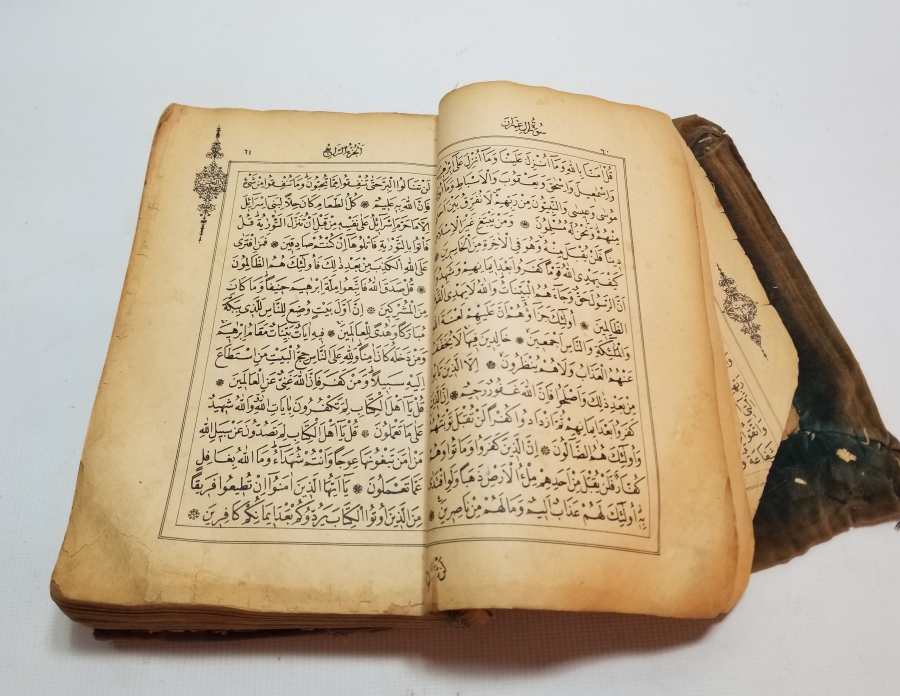 ٦٠ سُورَةُ اٰلِ عِمْرٰنَ
قُلْ اٰمَنَّا بِاللّٰهِ وَمَا اُنْزِلَ عَلَيْنَا وَمَا اُنْزِلَ عَلٰى
وَاِسْمٰعِيلَ وَاِسْحٰقَ وَيَعْقُوبَ وَالْاَسْبَاطِ وَمَا
مُوسٰى وَعِيسٰى وَالنَّبِيُّونَ مِنْ رَبِّهِمْ لَا نُفَرِّقُ بَيْنَ
مِنْهُمْ وَنَحْنُ لَهُ مُسْلِمُونَ ۞ وَمَنْ يَبْتَغِ غَيْرَ الْاِسْلَامِ
دِينًا فَلَنْ يُقْبَلَ مِنْهُ وَهُوَ فِي الْاٰخِرَةِ مِنَ الْخَاسِرِينَ
كَيْفَ يَهْدِي اللّٰهُ قَوْمًا كَفَرُوا بَعْدَ اِيمَانِهِمْ وَشَهِدُوا
اَنَّ الرَّسُولَ حَقٌّ وَجَاءَهُمُ الْبَيِّنَاتُ وَاللّٰهُ لَا يَهْدِي
الظَّالِمِينَ ۞ اُولٰئِكَ جَزَاؤُهُمْ اَنَّ عَلَيْهِمْ لَعْنَةَ
وَالْمَلٰئِكَةِ وَالنَّاسِ اَجْمَعِينَ ۞ خَالِدِينَ فِيهَا لَا يُخَفَّفُ
عَنْهُمُ الْعَذَابُ وَلَا هُمْ يُنْظَرُونَ ۞ اِلَّا الَّذِينَ
مِنْ بَعْدِ ذٰلِكَ وَاَصْلَحُوا فَاِنَّ اللّٰهَ غَفُورٌ رَحِيمٌ ۞ اِنَّ
كَفَرُوا بَعْدَ اِيمَانِهِمْ ثُمَّ ازْدَادُوا كُفْرًا لَنْ تُقْبَلَ تَوْبَتُهُمْ
وَاُولٰئِكَ هُمُ الضَّالُّونَ ۞ اِنَّ الَّذِينَ كَفَرُوا وَمَاتُوا وَهُمْ
كُفَّارٌ فَلَنْ يُقْبَلَ مِنْ اَحَدِهِمْ مِلْءُ الْاَرْضِ ذَهَبًا وَلَوِ افْتَدٰى
بِهِ اُولٰئِكَ لَهُمْ عَذَابٌ اَلِيمٌ وَمَا لَهُمْ مِنْ نَاصِرِينَ ۞
الجزء الرابع ٦١
لَنْ تَنَالُوا الْبِرَّ حَتّٰى تُنْفِقُوا مِمَّا تُحِبُّونَ وَمَا تُنْفِقُوا مِنْ شَيْءٍ
فَاِنَّ اللّٰهَ بِهِ عَلِيمٌ ۞ كُلُّ الطَّعَامِ كَانَ حِلًّا لِبَنِي اِسْرَائِلَ
اِلَّا مَا حَرَّمَ اِسْرَائِلُ عَلٰى نَفْسِهِ مِنْ قَبْلِ اَنْ تُنَزَّلَ التَّوْرٰيةُ قُلْ
فَأْتُوا بِالتَّوْرٰيةِ فَاتْلُوهَا اِنْ كُنْتُمْ صَادِقِينَ ۞ فَمَنِ افْتَرٰى
عَلَى اللّٰهِ الْكَذِبَ مِنْ بَعْدِ ذٰلِكَ فَاُولٰئِكَ هُمُ الظَّالِمُونَ
۞ قُلْ صَدَقَ اللّٰهُ فَاتَّبِعُوا مِلَّةَ اِبْرٰهِيمَ حَنِيفًا وَمَا كَانَ
مِنَ الْمُشْرِكِينَ ۞ اِنَّ اَوَّلَ بَيْتٍ وُضِعَ لِلنَّاسِ لَلَّذِي بِبَكَّةَ
مُبَارَكًا وَهُدًى لِلْعَالَمِينَ ۞ فِيهِ اٰيَاتٌ بَيِّنَاتٌ مَقَامُ اِبْرٰهِيمَ
وَمَنْ دَخَلَهُ كَانَ اٰمِنًا وَلِلّٰهِ عَلَى النَّاسِ حِجُّ الْبَيْتِ مَنِ اسْتَطَاعَ
اِلَيْهِ سَبِيلًا وَمَنْ كَفَرَ فَاِنَّ اللّٰهَ غَنِيٌّ عَنِ الْعَالَمِينَ ۞
قُلْ يَا اَهْلَ الْكِتَابِ لِمَ تَكْفُرُونَ بِاٰيَاتِ اللّٰهِ وَاللّٰهُ شَهِيدٌ
عَلٰى مَا تَعْمَلُونَ ۞ قُلْ يَا اَهْلَ الْكِتَابِ لِمَ تَصُدُّونَ عَنْ سَبِيلِ اللّٰهِ
مَنْ اٰمَنَ تَبْغُونَهَا عِوَجًا وَاَنْتُمْ شُهَدَاءُ وَمَا اللّٰهُ بِغَافِلٍ
عَمَّا تَعْمَلُونَ ۞ يَا اَيُّهَا الَّذِينَ اٰمَنُوا اِنْ تُطِيعُوا فَرِيقًا
مِنَ الَّذِينَ اُوتُوا الْكِتَابَ يَرُدُّوكُمْ بَعْدَ اِيمَانِكُمْ كَافِرِينَ ۞